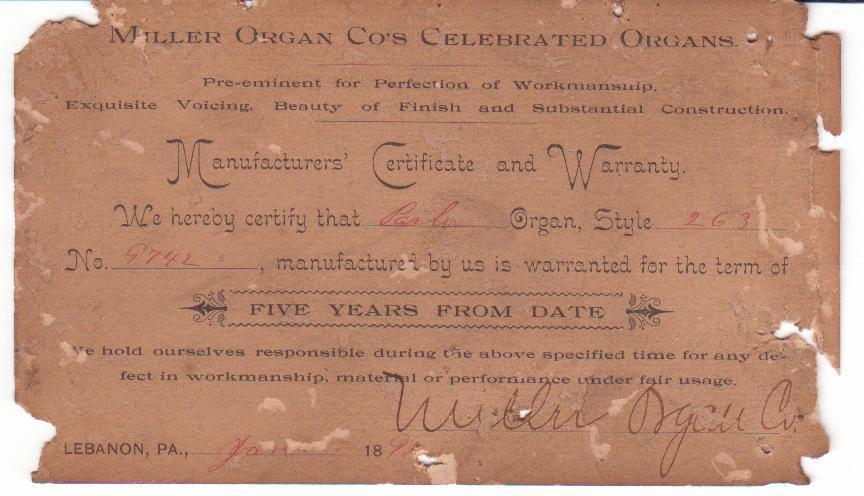 MILLER ORGAN CO'S CELEBRATED ORGANS.
Pre-eminent for Perfection of Workmanship,
Exquisite Voicing, Beauty of Finish and Substantial Construction.
Manufacturers' Certificate and Warranty.
We hereby certify that Parlor Organ, Style 263
No. 9742, manufactured by us is warranted for the term of
FIVE YEARS FROM DATE
We hold ourselves responsible during the above specified time for any de-
fect in workmanship, material or performance under fair usage.
Miller Organ Co.
LEBANON, PA., Jan 189